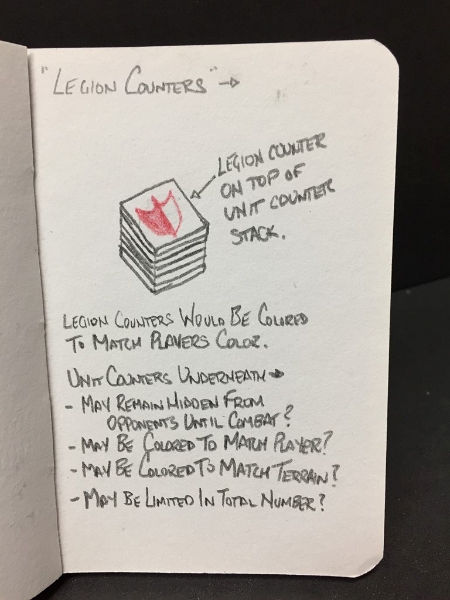 "LEGION COUNTERS" →
LEGION COUNTER
ON TOP OF
UNIT COUNTER
STACK.
LEGION COUNTERS WOULD BE COLORED
TO MATCH PLAYERS COLOR.
UNIT COUNTERS UNDERNEATH →
- MAY REMAIN HIDDEN FROM
OPPONENTS UNTIL COMBAT?
- MAY BE COLORED TO MATCH PLAYER?
- MAY BE COLORED TO MATCH TERRAIN?
- MAY BE LIMITED IN TOTAL NUMBER?